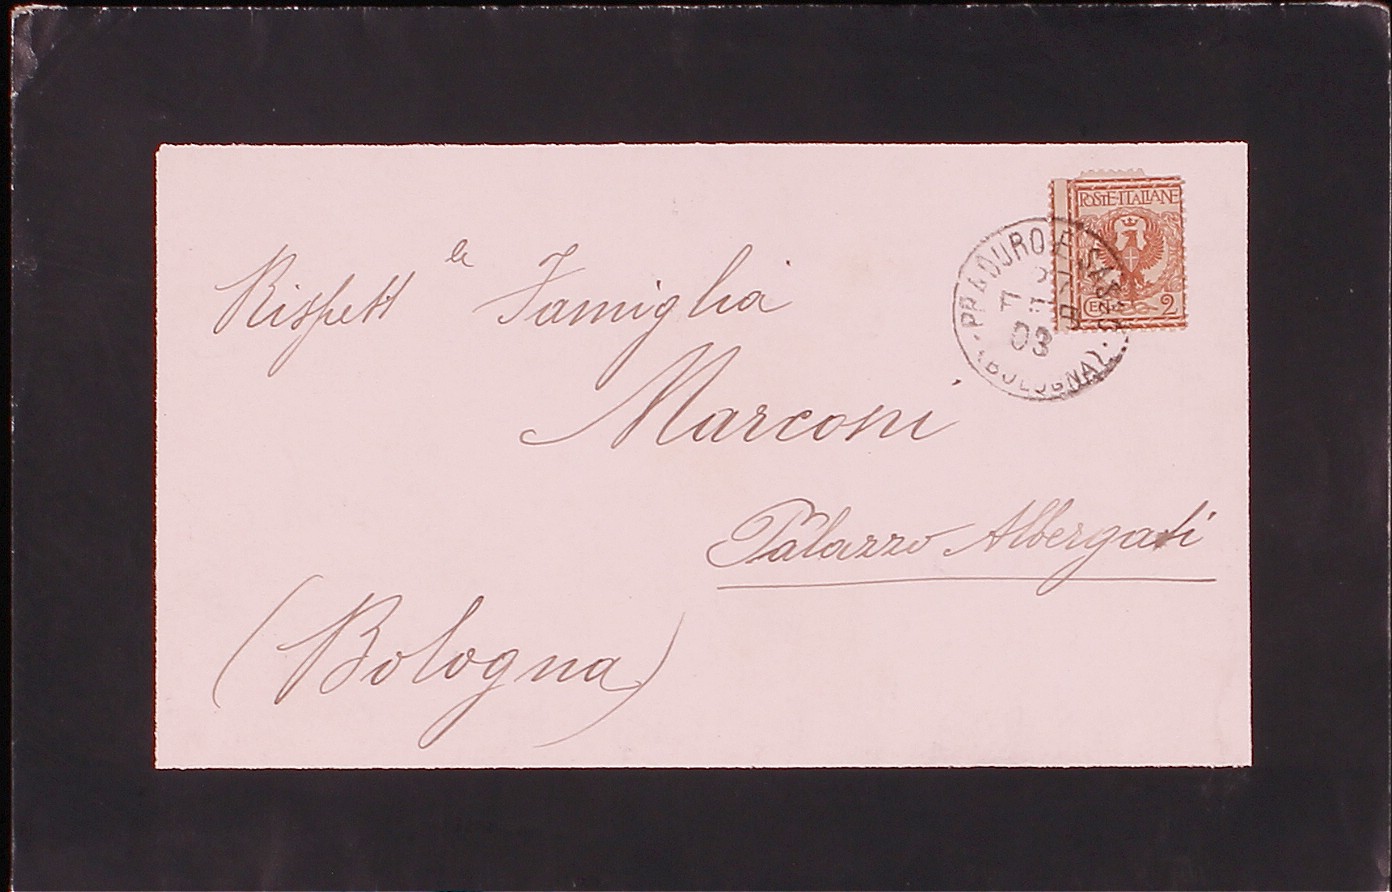 POSTE·ITALIANE
CEN 2
PRADURO E SASSO
03
(BOLOGNA)
Rispett le Famiglia
Marconi
Palazzo Albergati
(Bologna)